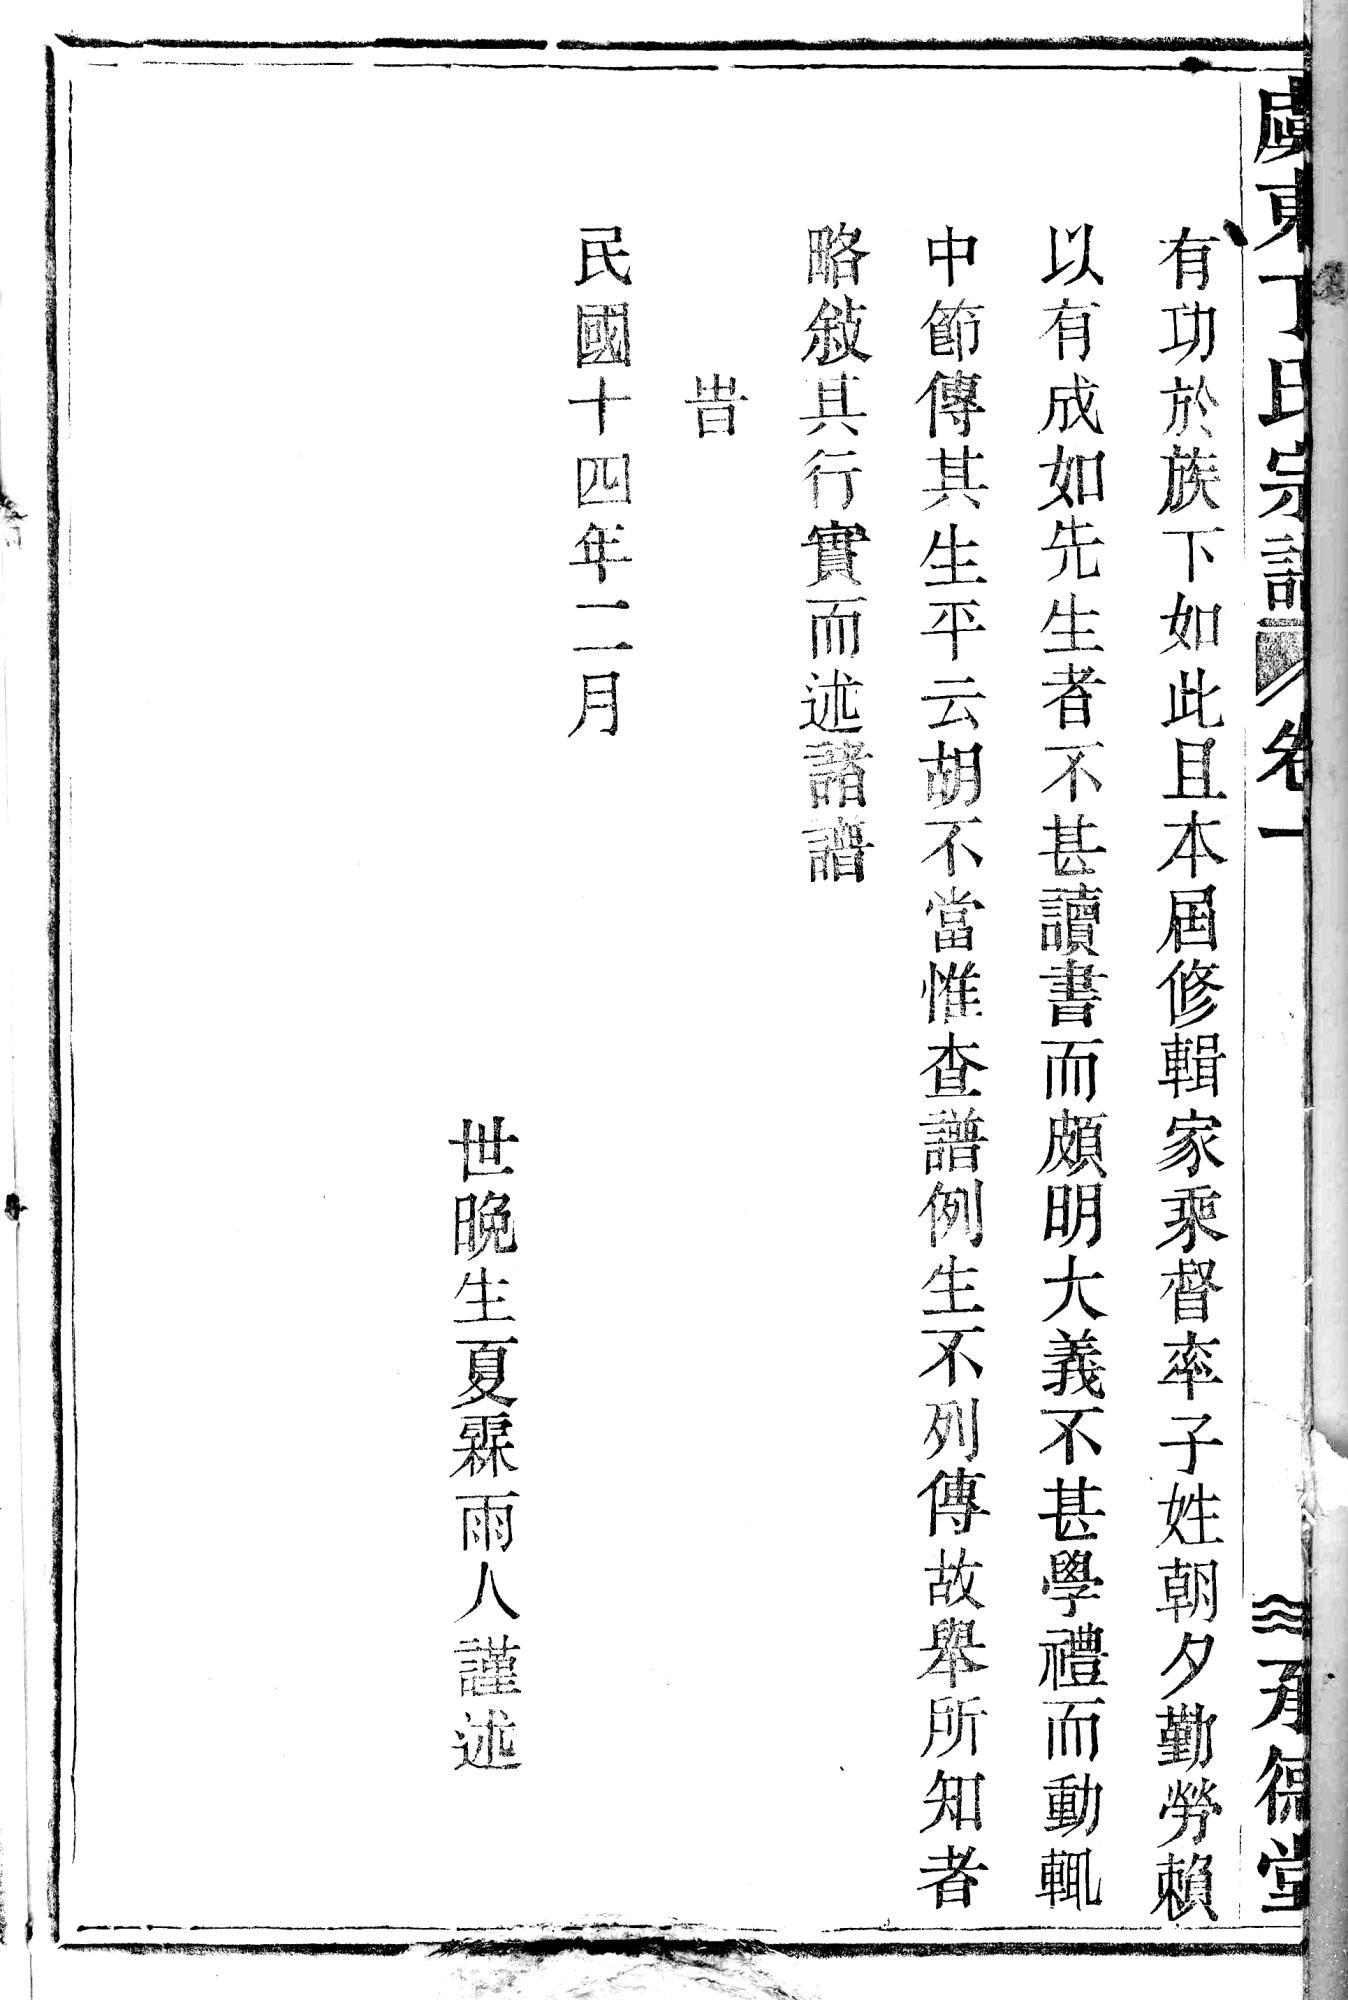 虞東丁氏宗譜 卷一 承德堂
有功於族下如此且本屆修輯家乘督率子姓朝夕勤勞賴
以有成如先生者不甚讀書而頗明大義不甚學禮而動輒
中節傳其生平云胡不當惟查譜例生不列傳故舉所知者
略敍其行實而述諸譜
旹
民國十四年二月
世晚生夏霖雨人謹述